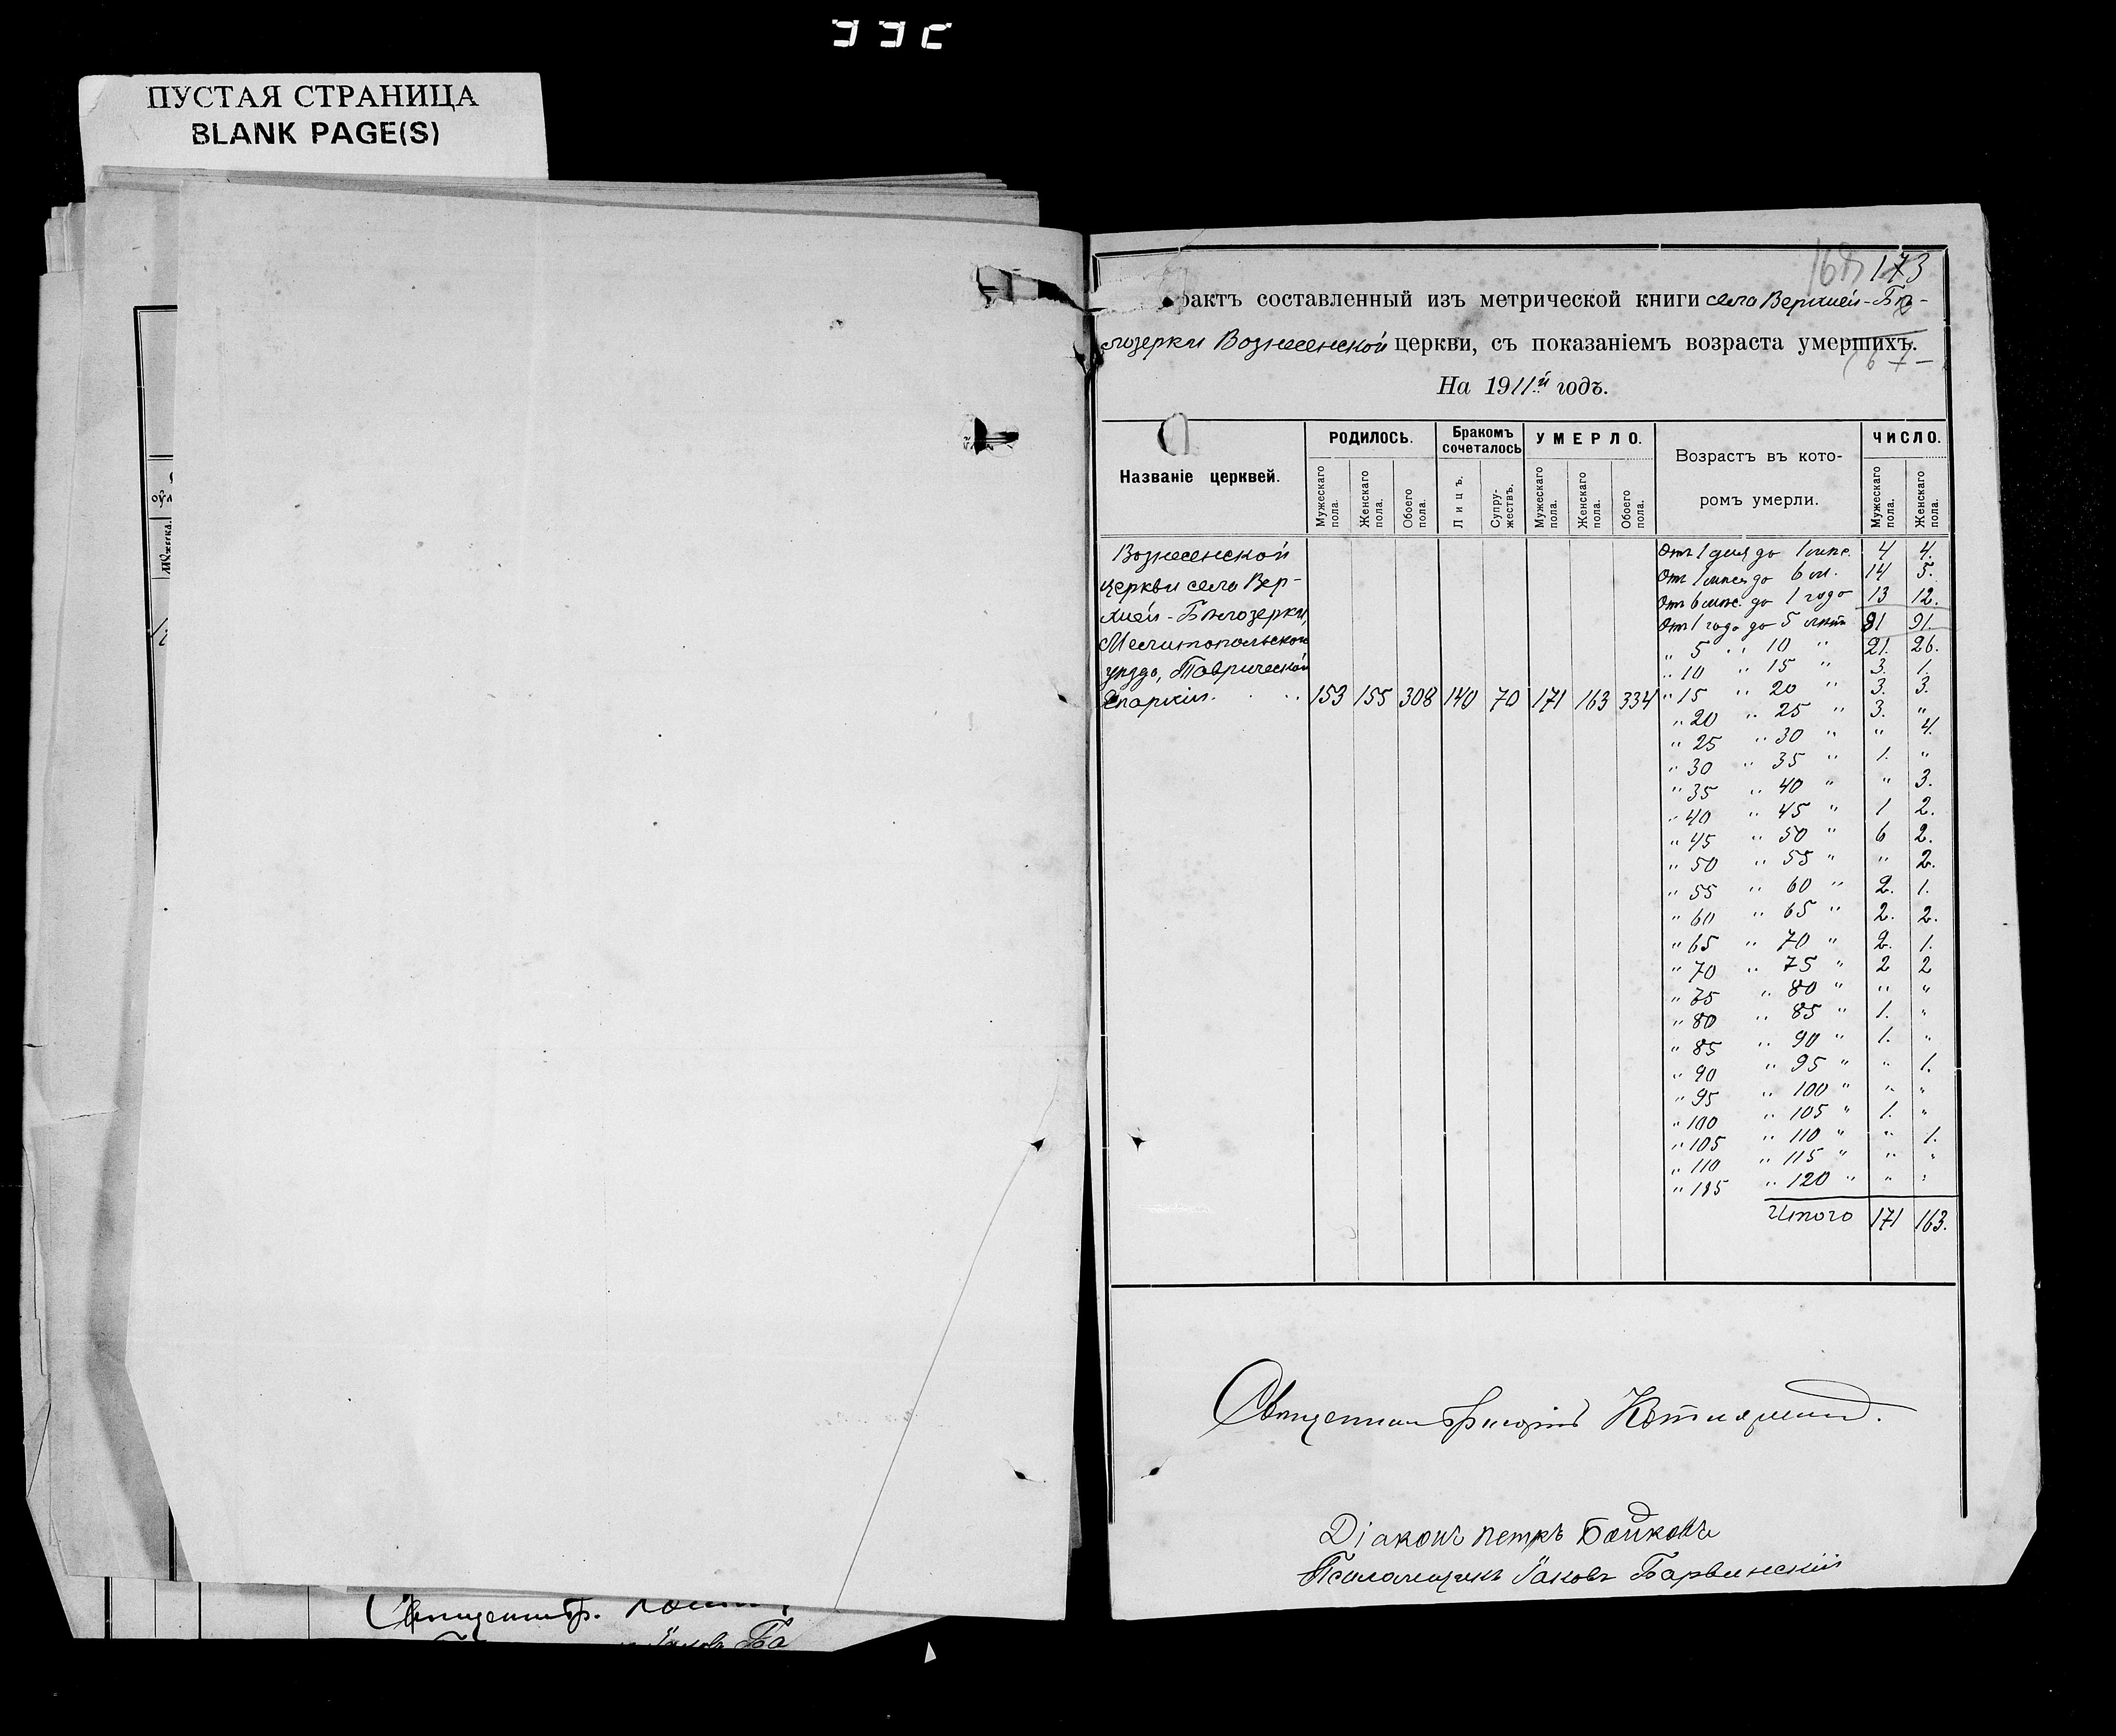 ПУСТАЯ СТРАНИЦА
BLANK PAGE(S)
173
рактъ составленный изъ метрической книги села Верхней-Бѣ-
лозерки Вознесенской церкви, съ показаніемъ возраста умершихъ.
На 1911й годъ.
Названіе церквей. РОДИЛОСЬ. Бракомъ сочеталось УМЕРЛО. Возрастъ въ кото-ромъ умерли. ЧИСЛО.
Мужескаго пола. Женскаго пола. Обоего пола. Лицъ. Супру-жествъ. Мужескаго пола. Женскаго пола. Обоего пола. Мужескаго пола. Женскаго пола.
Вознесенской
церкви села Вер-
хней-Бѣлозерки,
Мелитопольскаго
уѣзда, Таврической
Епархіи. 153 155 308 140 70 171 163 334
Отъ 1 дня до 1 мѣс. 4 4.
Отъ 1 мѣс. до 6 м. 14 5.
Отъ 6 мѣс. до 1 года 13 12.
Отъ 1 года до 5 лѣтъ 91 91.
" 5 " 10 " 21. 26.
" 10 " 15 " 3. 1.
" 15 " 20 " 3. 3.
" 20 " 25 " 3. "
" 25 " 30 " " 4.
" 30 " 35 " 1. "
" 35 " 40 " " 3.
" 40 " 45 " 1 2.
" 45 " 50 " 6 2.
" 50 " 55 " " 2.
" 55 " 60 " 2. 1.
" 60 " 65 " 2. 2.
" 65 " 70 " 2. 1.
" 70 " 75 " 2 2
" 75 " 80 " " "
" 80 " 85 " 1. "
" 85 " 90 " 1. "
" 90 " 95 " " 1.
" 95 " 100 " " "
" 100 " 105 " 1. "
" 105 " 110 " " 1.
" 110 " 115 " " "
" 115 " 120 " " "
Итого 171 163.
Священникъ Григорій
Діаконъ Петръ Бойковъ
Псаломщикъ Іаковъ Барвинскій